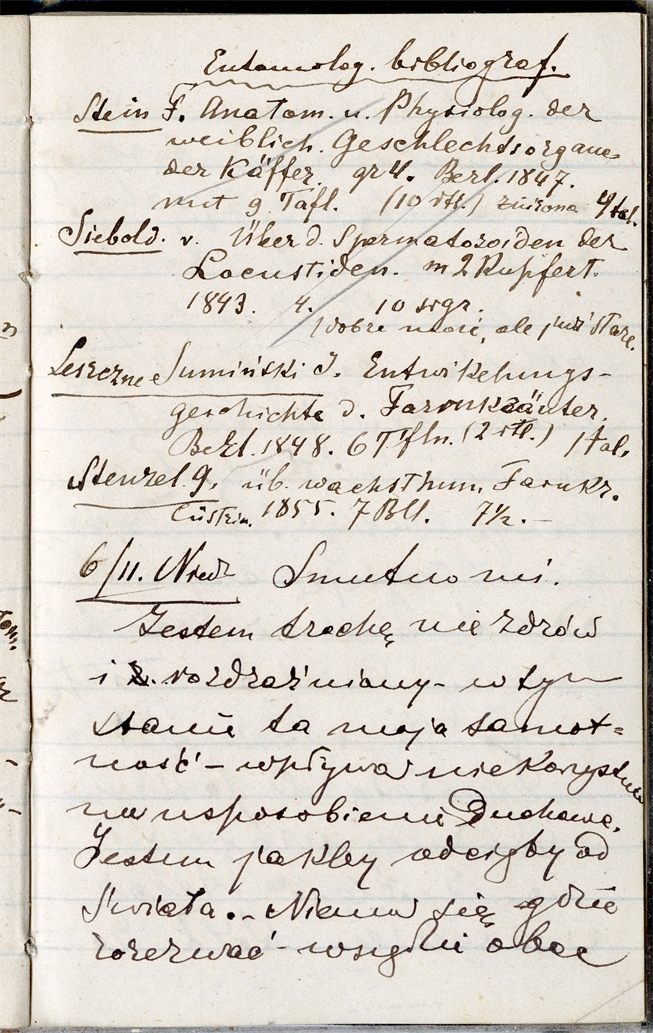 Entomolog. bibliograf.
Stein F. Anatom. u. Physiolog. der
weiblich. Geschlechtsorgane
der Käffer gr 4. Berl. 1847.
mit 9 Tafl. (10 rtl.) zniżona 4 tal.
Siebold. v. Über d. Spermatozoiden der
Locustiden. m 2 Kupfert.
1843. 4. 10 srgr.
/dobre może, ale już stare.
Leszczyc Sumiński J. Entwikelungs-
geschichte d. Farnkräuter.
Berl. 1848. 6 Tfln. (2 rtl.) 1 tal.
Stenzel. G. üb. wachsthum. Farnkr.
1855. 7 Bll. 7½. -
6/11. Niedz Smutno mi.
Jestem trochę nie zdrów
i rozdrażniony - w tym
stanie ta moja samot=
ność - wpływa niekorzystnie
na usposobienie Duchowe.
Jestem jakby odcięty od
Świata. - Niema się gdzie
rozerwać - wszędzie obce